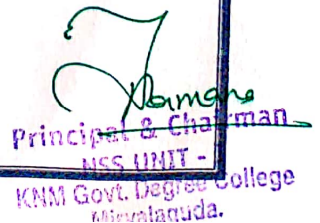 Principal & Chairman
NSS UNIT -
KNM Govt. Degree College
Miryalaguda.